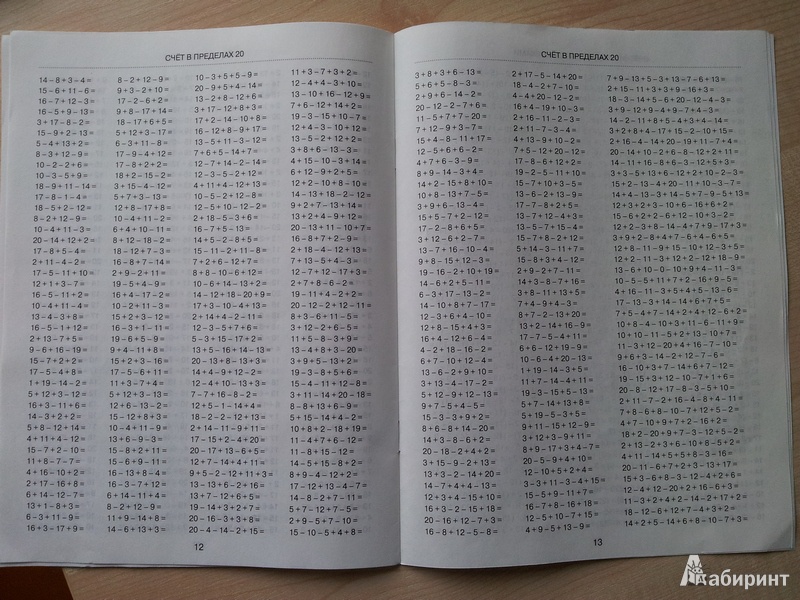 СЧЁТ В ПРЕДЕЛАХ 20
14-8+3-4=
15-6+11-6=
16-7+12-3=
16-5+9-13=
3+17-8-2=
15-9+2-13=
5-4+13+2=
8-3+12-9=
10-2-2+6=
10-3-5+9=
18-9+11-14=
17-8-1-4=
16-5+2-12=
8-2+12-9=
10-4+11-3=
20-14+12+2=
17-8+5-4=
2+11-4-2=
17-5-11+10=
12+1+3-7=
16-5-11+2=
16-4-10+2=
10-4+11-4=
13-4-3+8=
16-5-1+12=
2+13-7+5=
9-6+16-19=
15-7+2+2=
17-5-4+8=
1+19-14-2=
5+12+3-12=
16+3-11+6=
14-3+2+2=
5+8-12+14=
4+11+4-12=
15-7+2+10=
11+8-7-7=
4+16-10+2=
2+17-16+8=
6+14-12-7=
13+1-8+3=
6-3+11-9=
16+3-17+9=
8-2+12-9=
9+3-2+10=
17-2-6+2=
9+8-17+14=
18-17+6+5=
5+12+3-17=
6-3+11-8=
17-9-4+12=
17-8+2+2=
18+2-15-2=
3+15-4-12=
5+7+3-13=
12+8-17+8=
10-4+11-2=
6+4+10-11=
8+12-18-2=
18-12+7-3=
16-8+7-14=
2+9-2+11=
19-5+4-9=
16-4+7-17=
10-2+11-3=
15+2+3-12=
16-3+1-11=
6-2+9-13=
9+4-11+8=
15+2+3-16=
17-5-5+13=
11+3-7+4=
5+12+3-13=
12+6-13-2=
15-12+8+3=
10-4+2+12=
13+6-9-3=
15-8+2+11=
15-6+9-11=
16-13+8-4=
16-3-7+11=
6+14-11+4=
8-2+12-9=
11+9-14+8=
14-6+13+6=
10-3+5+5-9=
20-9+5+4-14=
13-2+8-12+6=
3+17-12+8+3=
17+2-14-10+8=
16-12+8+9-17=
13-5+11-3-12=
7+6+5-14+7=
12-7+14-2-14=
12-3-5-2+12=
4+11+4-12+13=
10-5-2+12+8=
12-5+10-12-2=
2+18-5-3+6=
16-7+5-13=
14+5-2-8+5=
15-11-2+11-8=
7+2+6-12+12=
8+8-10-6+12=
10-6+14-13+2=
14-12+18-20+9=
17+3-10-4+13=
2+14+4-2-11=
12-3-5+7+6=
5-3+15-17+2=
13+5-16+14-13=
20-13+8-13+3=
14+4-9+12-2=
12-4+10-13+3=
7-6+8-12+2=
12+5-1-14+4=
18-2-2-12+13=
2+14-11-9+11=
17-15+2-4+20=
20-17+6-6-2=
12-7+14-4+11=
9+5-2-12+11+3=
13-13+6-2+16=
13+7-12+6+5=
20-16-3+3+8=
20-4-14-2+15=
11+3-7+3+2=
12-4+4-3+10=
13-10+16-12+9=
7+6-12+14+2=
19-3-15+10-7=
12+4-3-10+12=
13-5-2+12+2=
3+8+6-13-3=
4+15-10-3+14=
6+12-9+2+5=
12+2-10+8-10=
14-13+18-2-12=
9+2+7-13+14=
13+2+4-9+12=
20-13+11-10+7=
16-8+7+2-9=
2+18-4-12+13=
7+13-5+4-3=
12-7+12-17+3=
2+7+8-6-2=
19-11+4-2+2=
20-12-2+12-11=
8+3+6+11-5=
3+12-2+6-5=
11+5-8-3+9=
13-4+8+3-20=
3+9+5-13+2=
19-3-8+5+6=
15-4-11+12-8=
3+11-14+20-18=
8-8+13+6-9=
5+15-14+4-2=
10+8+2-18+19=
11-4+7+6-12=
11-8+15-12=
14-5+15-8+2=
8+9-4-12+2=
17-12+13-4-7=
14-8-2+7-11=
5+7-12+7-5=
2+9-5+7+10=
15-10-5+4+8=
12
СЧЁТ В ПРЕДЕЛАХ 20
3+8+3+6-13=
5+6+5-8-3=
2+9+6-14-2=
20-12-2-7+6=
11-5+7+7-20=
7+12-9+3-7=
15+4-8-11+17=
12-5+6+6-2=
4+7+6-3-9=
8+9-14-3+4=
14+2-15+8+10=
10+8-13+7-5=
3+9+6-13-4=
20-18+5+7-2=
17-2-8-5+12=
3-2+12+6-7=
13-7+16-10-4=
9+8-15+12-3=
19-16-2+10+19=
14-6+2+5-11=
6-3+17-13-2=
14-10+8+7-17=
12+8-15+4+3=
16+4-6-12+14=
4-2+18-16-2=
6+7-10+12-4=
13+6-4-17-2=
5+12-2-8-4=
9+7-5+4-5=
15-3-3+9+2=
8+6-8+14-20=
14+3-8-6+2=
20-18-2+4+2=
3+15-9-13+2=
13+3-2-14+20=
14-7+4-3+7=
12+3+4-15+10=
16+3-18+5+10=
20-16+12+7-12=
16-8+12-5-8=
2+17-5-14+20=
18-4-2+7-10=
16+4-19+10-3=
2+16-11-2-3=
2+11-7-3-4=
4+13-9+10-2=
7+5-12+20-12=
17-8-6+12+2=
19-2-5-11+10=
15-7+10+3-5=
13-6-2+13-9=
17-7-8+2+5=
13-5-4+15-6=
15-7+8-2+12=
5+14-3-11+7=
15-8+6+5-13=
2+9-2+7-11=
14+3-8-7+16=
3+8-11+13+5=
7+4-9+4-3=
13+2-14+16-9=
2+17-7-5+4=
6+6-12+19-9=
10-6-4+20-13=
11+7-14-4+11=
19-3-15+5+13=
5+7-14+13+8=
5+19-5-3+5=
9+11-5-3+4=
3+12+3-9+11=
8+9-17+3+4-7=
20-5-9+4+10=
12-10+5+2+4=
3-3+11-3-4+15=
15-5+9-11+7=
16-9+5+8-17=
12-5+10+7-5=
4+9-5+13-9=
7+9-13+5-3+13-7-6+13=
2+15-11+3+3+9-16+3=
18-3-14+5-6+20-12-4-3=
3+9-12+9-4+9-7+4=
14-2-11+8+5-4+3+4-14=
3+2+8+4-17+15-2-10+15=
2+16-4-14+20-19+11-7+4=
20-14+10+2-6+8-12+2+11=
14-11+16-8+6-3-12+5+3=
3+3-5+13+6-12+10-2-3=
15+2-13-4+20-11+10-3-7=
14+4-13-3+14-5+7-9-5+13=
12+3+2+3-10+6-16+6+2=
15-6+2+2-6+12-10+3-2=
12+2-3+8-14-4+7+9+17-3=
3+9+2-8+4-7+6-4+6+5=
12+8-11-9+15-10+12-3+5=
13-6+10-0-10+9+4-11-3=
10-5-5+11+7+2-16+9-5=
4+16-11-3+5+4+5-13-6=
17-13-3+14-14+6+7+5=
7+5-4+7-14+2+4+12-6+2=
10+8-4-10+3+11-6-11+9=
10+10-17+5-3-5+13-2=
11-3+12-20+4+16-7-10=
9+6+3-14-2+12-7-6=
16-10+3+7-14+6+7+12=
19-15+3+12-10-7+1+6=
20-8-12+17-8-3+5-10=
2+11-7-2+16-4-8+4-11=
7+8-6+8-10-7+12+5-2=
4+7-10+9+7+2-16+2=
18+2-20+9+7-3-12+5-2=
2+13-2+3+6-10+8-5+2=
4+3+8-13+2-5+6+3-5=
20-11-6+7+2+3-13+17=
15+3+6+8-3-12-4+5-2=
12-4+12+20+2+16-6+3=
11-3+2+4+2-14-2+17+2=
18-12-6+12+7-4-3+2=
14+2+5-14+6+8-10-7+3=
13
Лабиринт